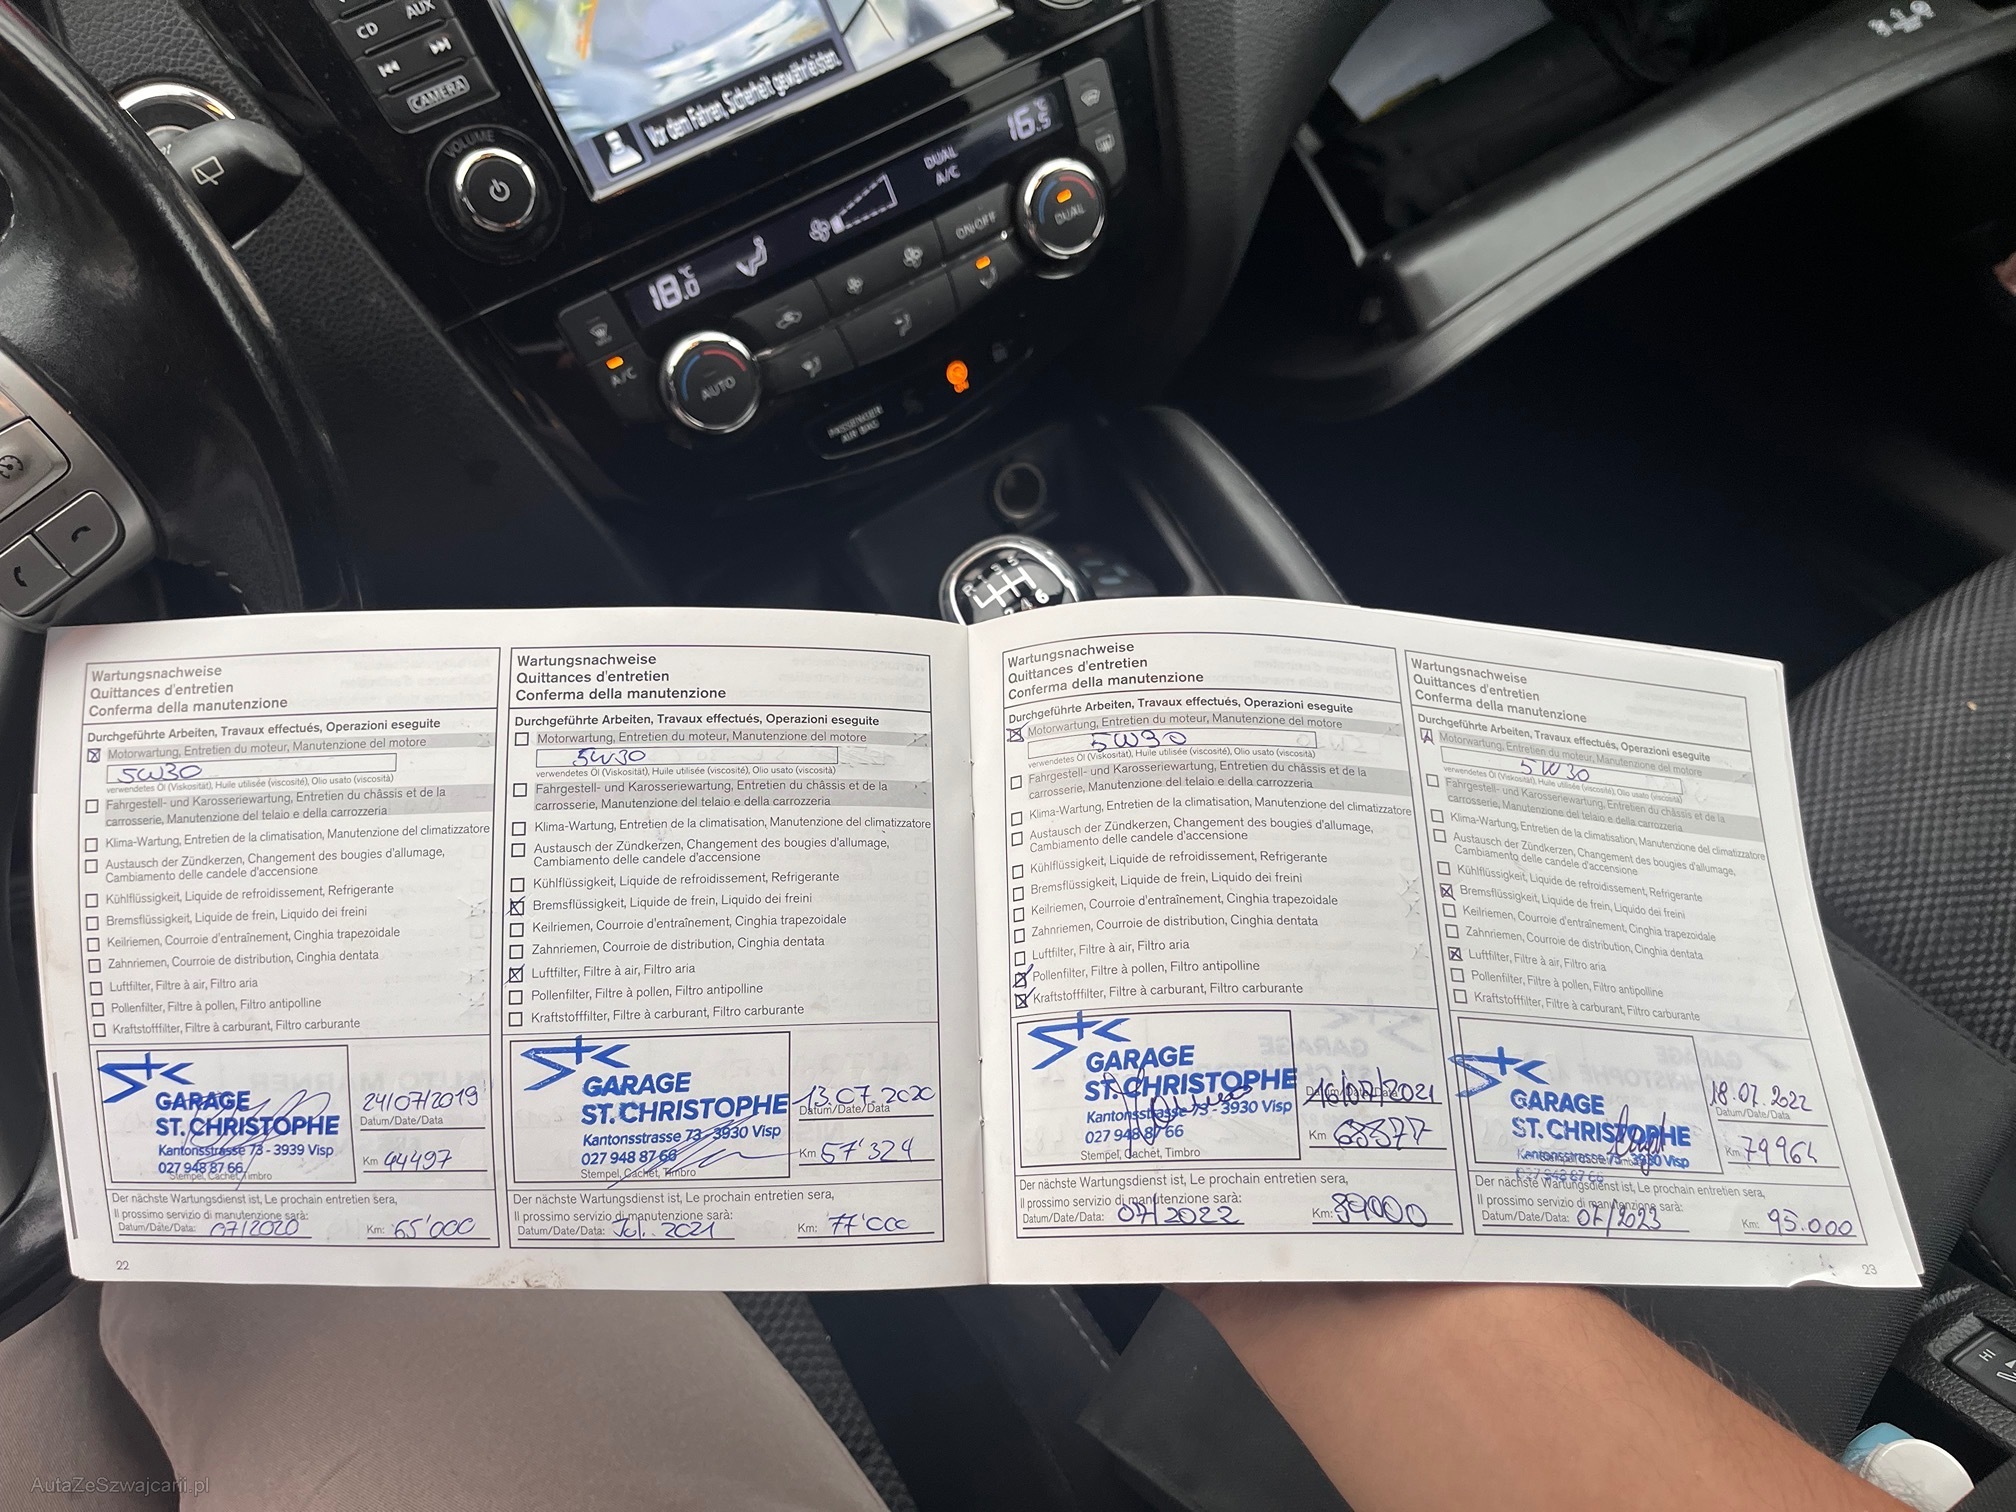 CD
AUX
CAMERA
VOLUME
Vor dem Fahren, Sicherheit gewährleisten.
16.5 °C
DUAL
A/C
18.0 °C
ON·OFF
DUAL
A/C
AUTO
PASSENGER
AIR BAG
R 1 3 5
2 4 6
HI
Wartungsnachweise
Quittances d'entretien
Conferma della manutenzione
Durchgeführte Arbeiten, Travaux effectués, Operazioni eseguite
Motorwartung, Entretien du moteur, Manutenzione del motore
5W30
verwendetes Öl (Viskosität), Huile utilisée (viscosité), Olio usato (viscosità)
Fahrgestell- und Karosseriewartung, Entretien du châssis et de la
carrosserie, Manutenzione del telaio e della carrozzeria
Klima-Wartung, Entretien de la climatisation, Manutenzione del climatizzatore
Austausch der Zündkerzen, Changement des bougies d'allumage,
Cambiamento delle candele d'accensione
Kühlflüssigkeit, Liquide de refroidissement, Refrigerante
Bremsflüssigkeit, Liquide de frein, Liquido dei freini
Keilriemen, Courroie d'entraînement, Cinghia trapezoidale
Zahnriemen, Courroie de distribution, Cinghia dentata
Luftfilter, Filtre à air, Filtro aria
Pollenfilter, Filtre à pollen, Filtro antipolline
Kraftstofffilter, Filtre à carburant, Filtro carburante
GARAGE
ST. CHRISTOPHE
Kantonsstrasse 73 - 3939 Visp
027 948 87 66
Stempel, Cachet, Timbro
24/07/2019
Datum/Date/Data
Km 44497
Der nächste Wartungsdienst ist, Le prochain entretien sera,
Il prossimo servizio di manutenzione sarà:
Datum/Date/Data: 07/2020 Km: 65'000
22
Wartungsnachweise
Quittances d'entretien
Conferma della manutenzione
Durchgeführte Arbeiten, Travaux effectués, Operazioni eseguite
Motorwartung, Entretien du moteur, Manutenzione del motore
5W30
verwendetes Öl (Viskosität), Huile utilisée (viscosité), Olio usato (viscosità)
Fahrgestell- und Karosseriewartung, Entretien du châssis et de la
carrosserie, Manutenzione del telaio e della carrozzeria
Klima-Wartung, Entretien de la climatisation, Manutenzione del climatizzatore
Austausch der Zündkerzen, Changement des bougies d'allumage,
Cambiamento delle candele d'accensione
Kühlflüssigkeit, Liquide de refroidissement, Refrigerante
Bremsflüssigkeit, Liquide de frein, Liquido dei freini
Keilriemen, Courroie d'entraînement, Cinghia trapezoidale
Zahnriemen, Courroie de distribution, Cinghia dentata
Luftfilter, Filtre à air, Filtro aria
Pollenfilter, Filtre à pollen, Filtro antipolline
Kraftstofffilter, Filtre à carburant, Filtro carburante
GARAGE
ST. CHRISTOPHE
Kantonsstrasse 73 - 3930 Visp
027 948 87 66
Stempel, Cachet, Timbro
13.07.2020
Datum/Date/Data
Km 57'324
Der nächste Wartungsdienst ist, Le prochain entretien sera,
Il prossimo servizio di manutenzione sarà:
Datum/Date/Data: Jul. 2021 Km: 77'000
Wartungsnachweise
Quittances d'entretien
Conferma della manutenzione
Durchgeführte Arbeiten, Travaux effectués, Operazioni eseguite
Motorwartung, Entretien du moteur, Manutenzione del motore
5W30
verwendetes Öl (Viskosität), Huile utilisée (viscosité), Olio usato (viscosità)
Fahrgestell- und Karosseriewartung, Entretien du châssis et de la
carrosserie, Manutenzione del telaio e della carrozzeria
Klima-Wartung, Entretien de la climatisation, Manutenzione del climatizzatore
Austausch der Zündkerzen, Changement des bougies d'allumage,
Cambiamento delle candele d'accensione
Kühlflüssigkeit, Liquide de refroidissement, Refrigerante
Bremsflüssigkeit, Liquide de frein, Liquido dei freini
Keilriemen, Courroie d'entraînement, Cinghia trapezoidale
Zahnriemen, Courroie de distribution, Cinghia dentata
Luftfilter, Filtre à air, Filtro aria
Pollenfilter, Filtre à pollen, Filtro antipolline
Kraftstofffilter, Filtre à carburant, Filtro carburante
GARAGE
ST. CHRISTOPHE
Kantonsstrasse 73 - 3930 Visp
027 948 87 66
Stempel, Cachet, Timbro
16/07/2021
Datum/Date/Data
Km 68377
Der nächste Wartungsdienst ist, Le prochain entretien sera,
Il prossimo servizio di manutenzione sarà:
Datum/Date/Data: 07/2022 Km: 89000
Wartungsnachweise
Quittances d'entretien
Conferma della manutenzione
Durchgeführte Arbeiten, Travaux effectués, Operazioni eseguite
Motorwartung, Entretien du moteur, Manutenzione del motore
5W30
verwendetes Öl (Viskosität), Huile utilisée (viscosité), Olio usato (viscosità)
Fahrgestell- und Karosseriewartung, Entretien du châssis et de la
carrosserie, Manutenzione del telaio e della carrozzeria
Klima-Wartung, Entretien de la climatisation, Manutenzione del climatizzatore
Austausch der Zündkerzen, Changement des bougies d'allumage,
Cambiamento delle candele d'accensione
Kühlflüssigkeit, Liquide de refroidissement, Refrigerante
Bremsflüssigkeit, Liquide de frein, Liquido dei freini
Keilriemen, Courroie d'entraînement, Cinghia trapezoidale
Zahnriemen, Courroie de distribution, Cinghia dentata
Luftfilter, Filtre à air, Filtro aria
Pollenfilter, Filtre à pollen, Filtro antipolline
Kraftstofffilter, Filtre à carburant, Filtro carburante
GARAGE
ST. CHRISTOPHE
Kantonsstrasse 73 - 3930 Visp
027 948 87 66
18.07.2022
Datum/Date/Data
Km 79964
Der nächste Wartungsdienst ist, Le prochain entretien sera,
Il prossimo servizio di manutenzione sarà:
Datum/Date/Data: 07/2023 Km: 95.000
23
AutaZeSzwajcarii.pl